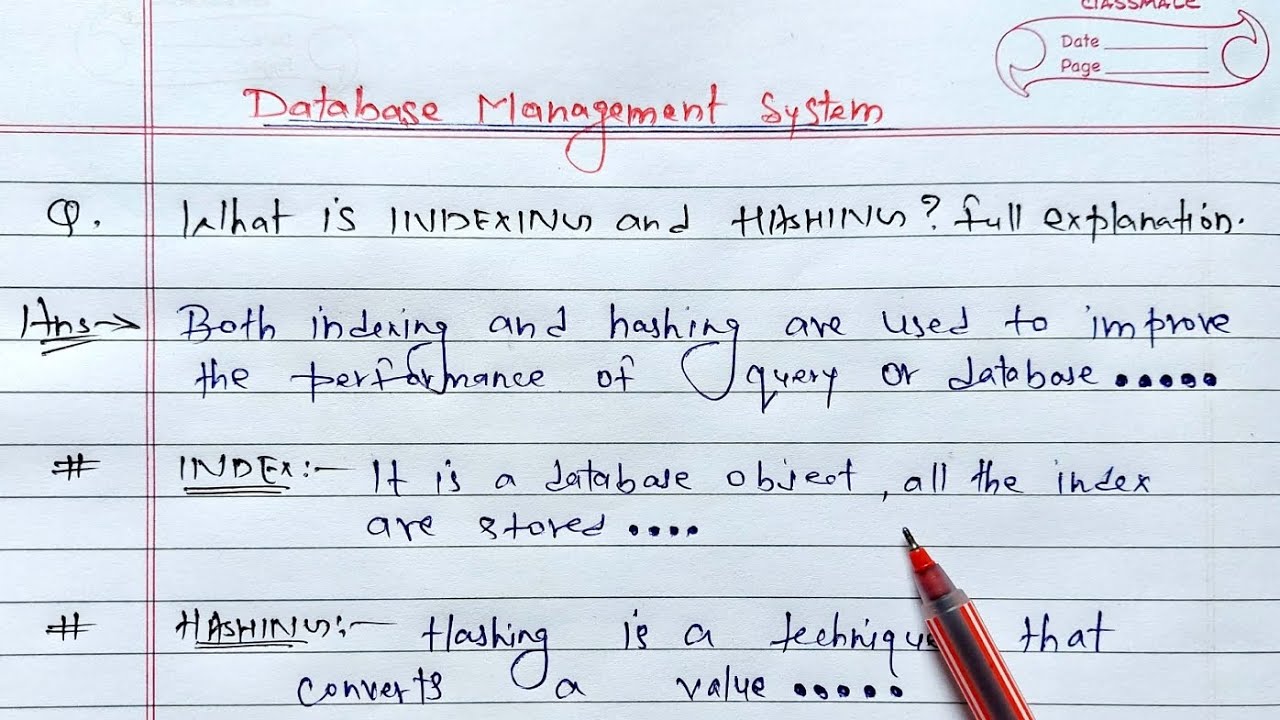 CLASSMATE
Date
Page
Database Management System
Q. What is INDEXING and HASHING? full explanation.
Ans→ Both indexing and hashing are used to improve
the performance of query or database .....
# INDEX:- It is a database object, all the index
are stored ....
# HASHING:- Hashing is a technique that
converts a value .....